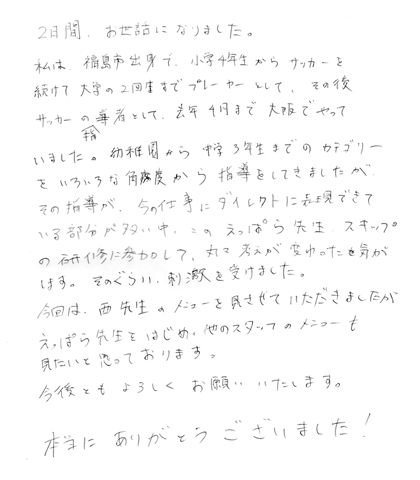 2日間、お世話になりました。
私は、福島市出身で、小学4年生からサッカーを
続けて大学の2回生までプレーヤーとして、その後
サッカーの指導者として、去年4月まで大阪でやって
いました。幼稚園から中学3年生までのカテゴリー
をいろいろな角度から指導をしてきましたが
その指導が、今の仕事にダイレクトに表現できて
いる部分が多い中、このえっぱら先生、スキップ
の研修に参加して、丸で考えが変わった気が
します。そのぐらい、刺激を受けました。
今回は、西先生のメニューを見させていただきましたが
えっぱら先生をはじめ、他のスタッフのメニューも
見たいと思っております。
今後ともよろしくお願いいたします。
本当にありがとうございました!